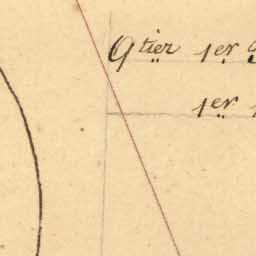 Qtier 1er
1er